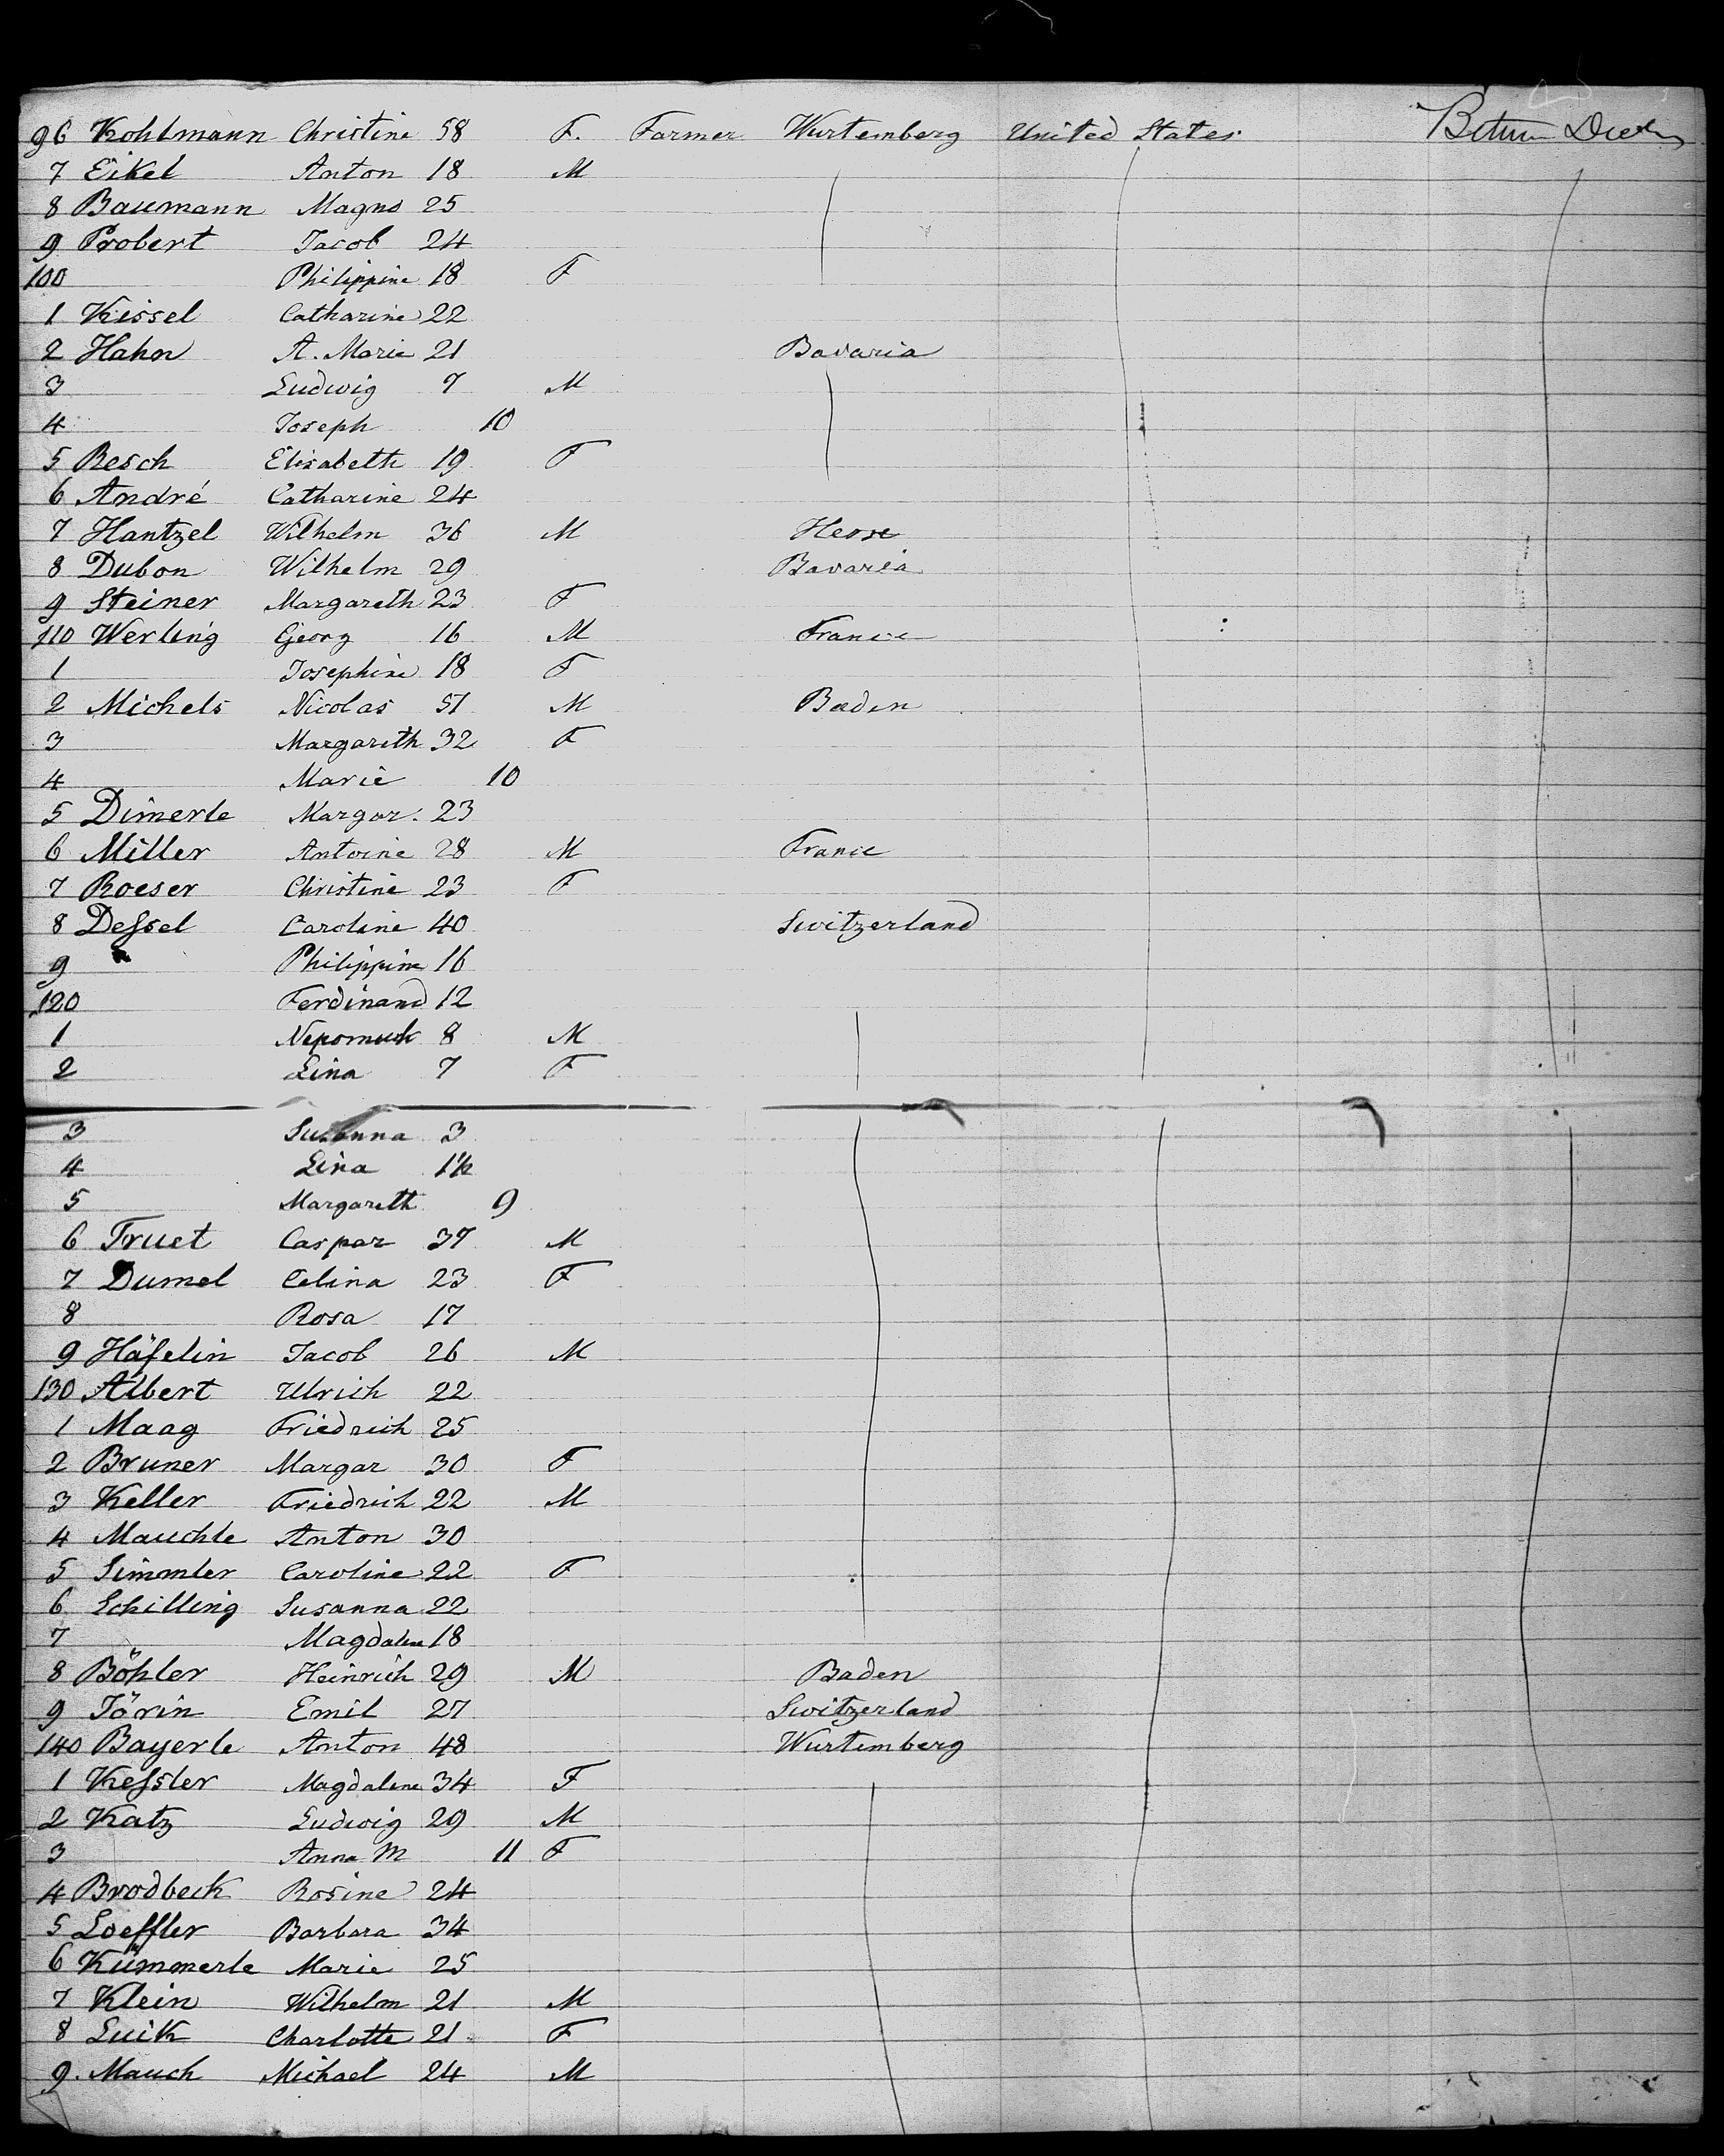 96 Kohlmann Christine 58 F. Farmer Wurtemberg United States Between Decks
7 Eikel Anton 18 M
8 Baumann Magns 25
9 Probert Jacob 24
100 Philippine 18 F
1 Kissel Catharine 22
2 Hahn A. Marie 21 Bavaria
3 Ludwig 7 M
4 Joseph 10
5 Resch Elisabeth 19 F
6 André Catharine 24
7 Hantzel Wilhelm 36 M Hesse
8 Dubon Wilhelm 29 Bavaria
9 Steiner Margareth 23 F
110 Werling Georg 16 M France
1 Josephine 18 F
2 Michels Nicolas 51 M Baden
3 Margareth 32 F
4 Marie 10
5 Dimerle Margar. 23
6 Miller Antoine 28 M France
7 Roeser Christine 23 F
8 Dessel Caroline 40 Switzerland
9 Philippine 16
120 Ferdinand 12
1 Nepomuck 8 M
2 Lina 7 F
3 Susanna 3
4 Lina 1½
5 Margareth 9
6 Truet Caspar 37 M
7 Dumel Celina 23 F
8 Rosa 17
9 Häfelin Jacob 26 M
130 Albert Ulrich 22
1 Maag Friedrich 25
2 Bruner Margar 30 F
3 Keller Friedrich 22 M
4 Mauchle Anton 30
5 Simmler Caroline 22 F
6 Schilling Susanna 22
7 Magdalene 18
8 Böhler Heinrich 29 M Baden
9 Jörin Emil 27 Switzerland
140 Bayerle Anton 48 Wurtemberg
1 Kessler Magdalene 34 F
2 Katz Ludwig 29 M
3 Anna M 11 F
4 Brodbeck Rosine 24
5 Loeffler Barbara 34
6 Kümmerle Marie 25
7 Klein Wilhelm 21 M
8 Luik Charlotte 21 F
9. Mauch Michael 24 M